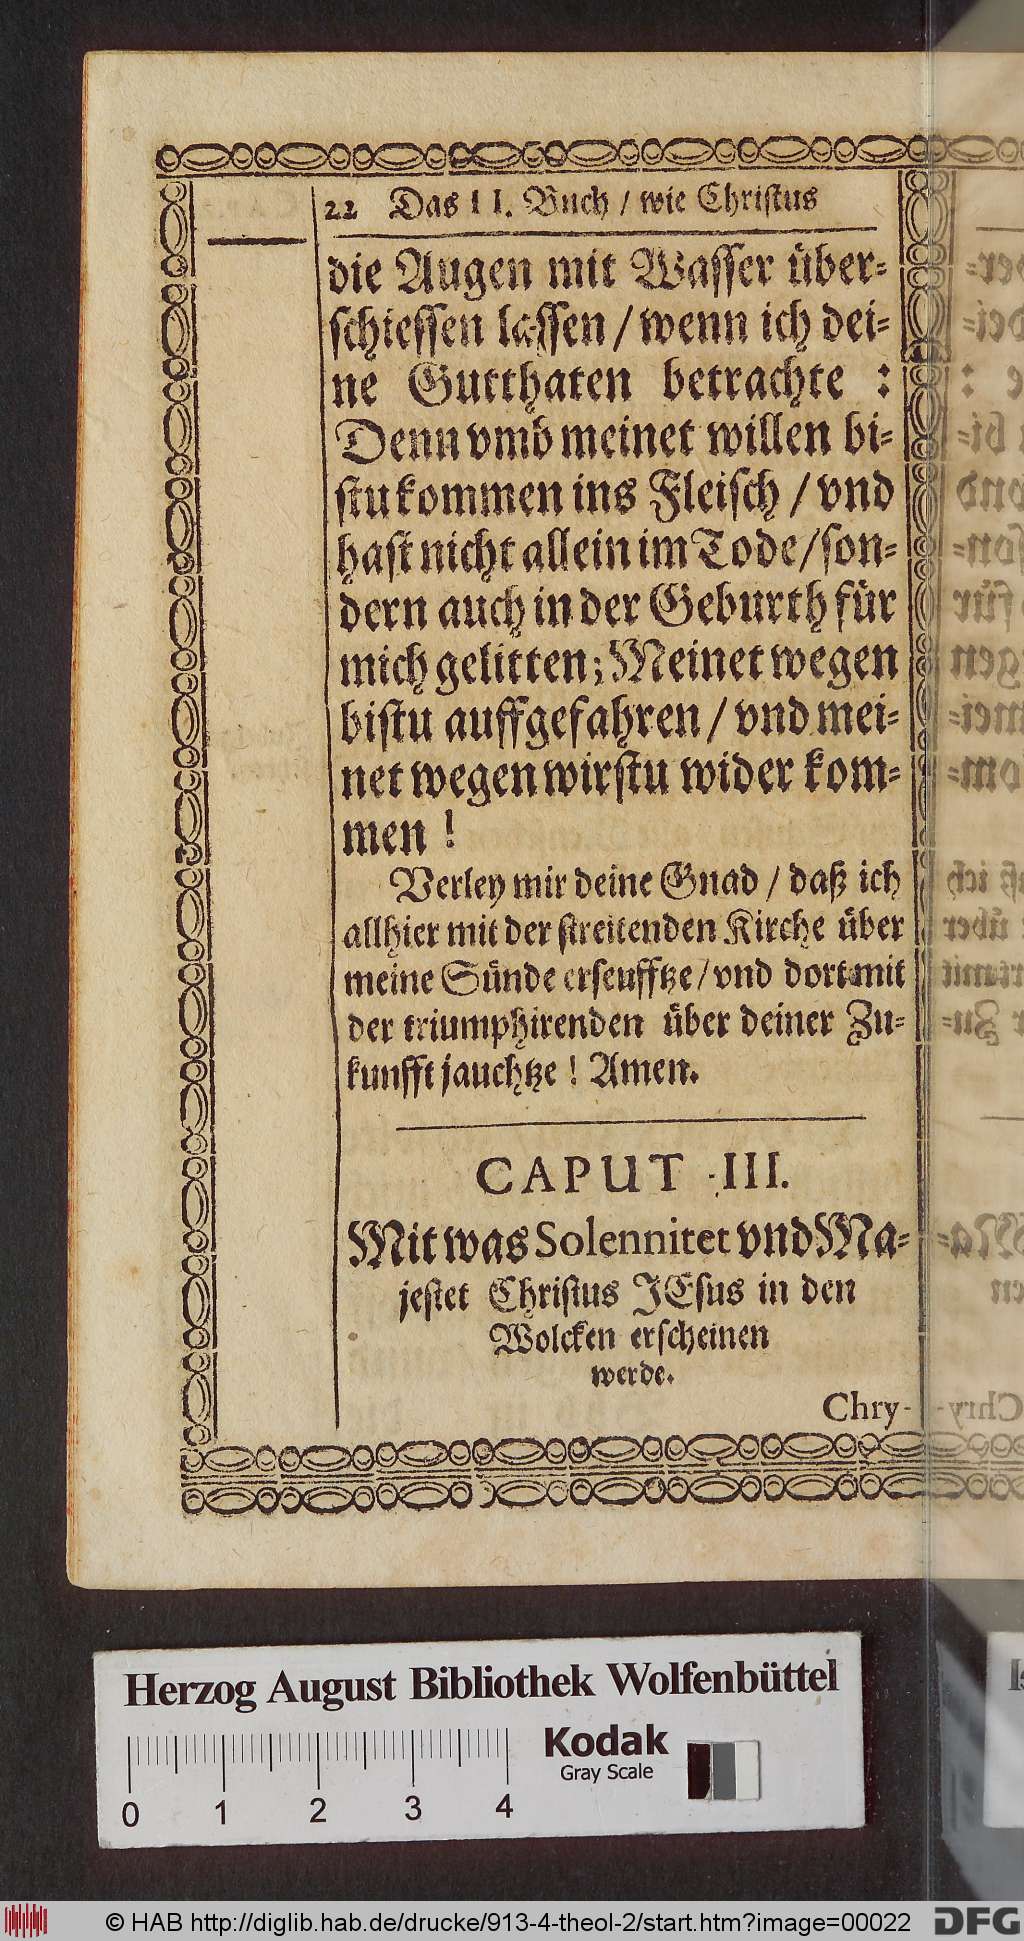 22 Das II. Buch / wie Christus
die Augen mit Wasser über=
schiessen lassen / wenn ich dei=
ne Gutthaten betrachte :
Denn vmb meinet willen bi=
stu kommen ins Fleisch / vnd
hast nicht allein im Tode / son=
dern auch in der Geburth für
mich gelitten; Meinet wegen
bistu auffgefahren / vnd mei=
net wegen wirstu wider kom=
men !
Verley mir deine Gnad / daß ich
allhier mit der streitenden Kirche über
meine Sünde erseufftze / vnd dort mit
der triumphirenden über deiner Zu=
kunfft jauchtze ! Amen.
CAPUT III.
Mit was Solennitet vnd Ma=
jestet Christus JEsus in den
Wolcken erscheinen
werde.
Chry-
Herzog August Bibliothek Wolfenbüttel
Kodak
Gray Scale
0 1 2 3 4
© HAB http://diglib.hab.de/drucke/913-4-theol-2/start.htm?image=00022
DFG